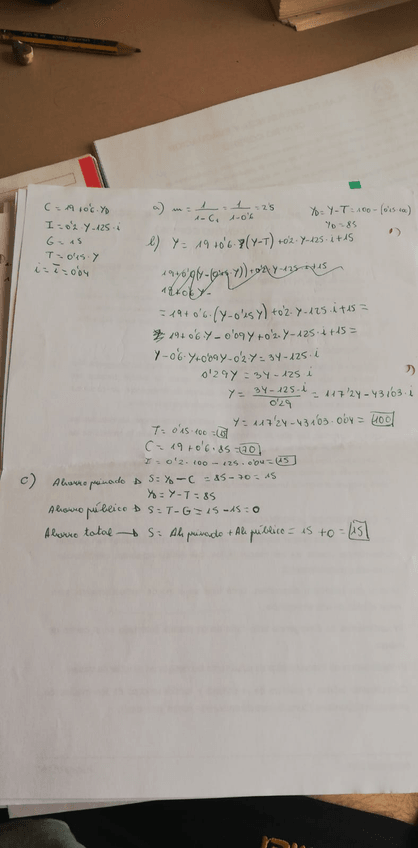 C = 19 + 0'6 · YD
I = 0'2 · Y - 125 · i
G = 15
T = 0'15 · Y
i = i = 0'04
a) m = 1 / (1 - C1) = 1 / (1 - 0'6) = 2'5
YD = Y - T = 100 - (0'15·100)
YD = 85
b) Y = 19 + 0'6 · (Y - T) + 0'2 · Y - 125 · i + 15
= 19 + 0'6 · (Y - 0'15 Y) + 0'2 · Y - 125 · i + 15 =
19 + 0'6 · Y - 0'09 Y + 0'2 · Y - 125 · i + 15 =
Y - 0'6 · Y + 0'09 Y - 0'2 Y = 34 - 125 · i
0'29 Y = 34 - 125 i
Y = (34 - 125 · i) / 0'29 = 117'24 - 431'03 · i
Y = 117'24 - 431'03 · 0'04 = 100
T = 0'15 · 100 = 15
C = 19 + 0'6 · 85 = 70
I = 0'2 · 100 - 125 · 0'04 = 15
c) Ahorro privado → S = YD - C = 85 - 70 = 15
YD = Y - T = 85
Ahorro público → S = T - G = 15 - 15 = 0
Ahorro total → S = Ah privado + Ah público = 15 + 0 = 15